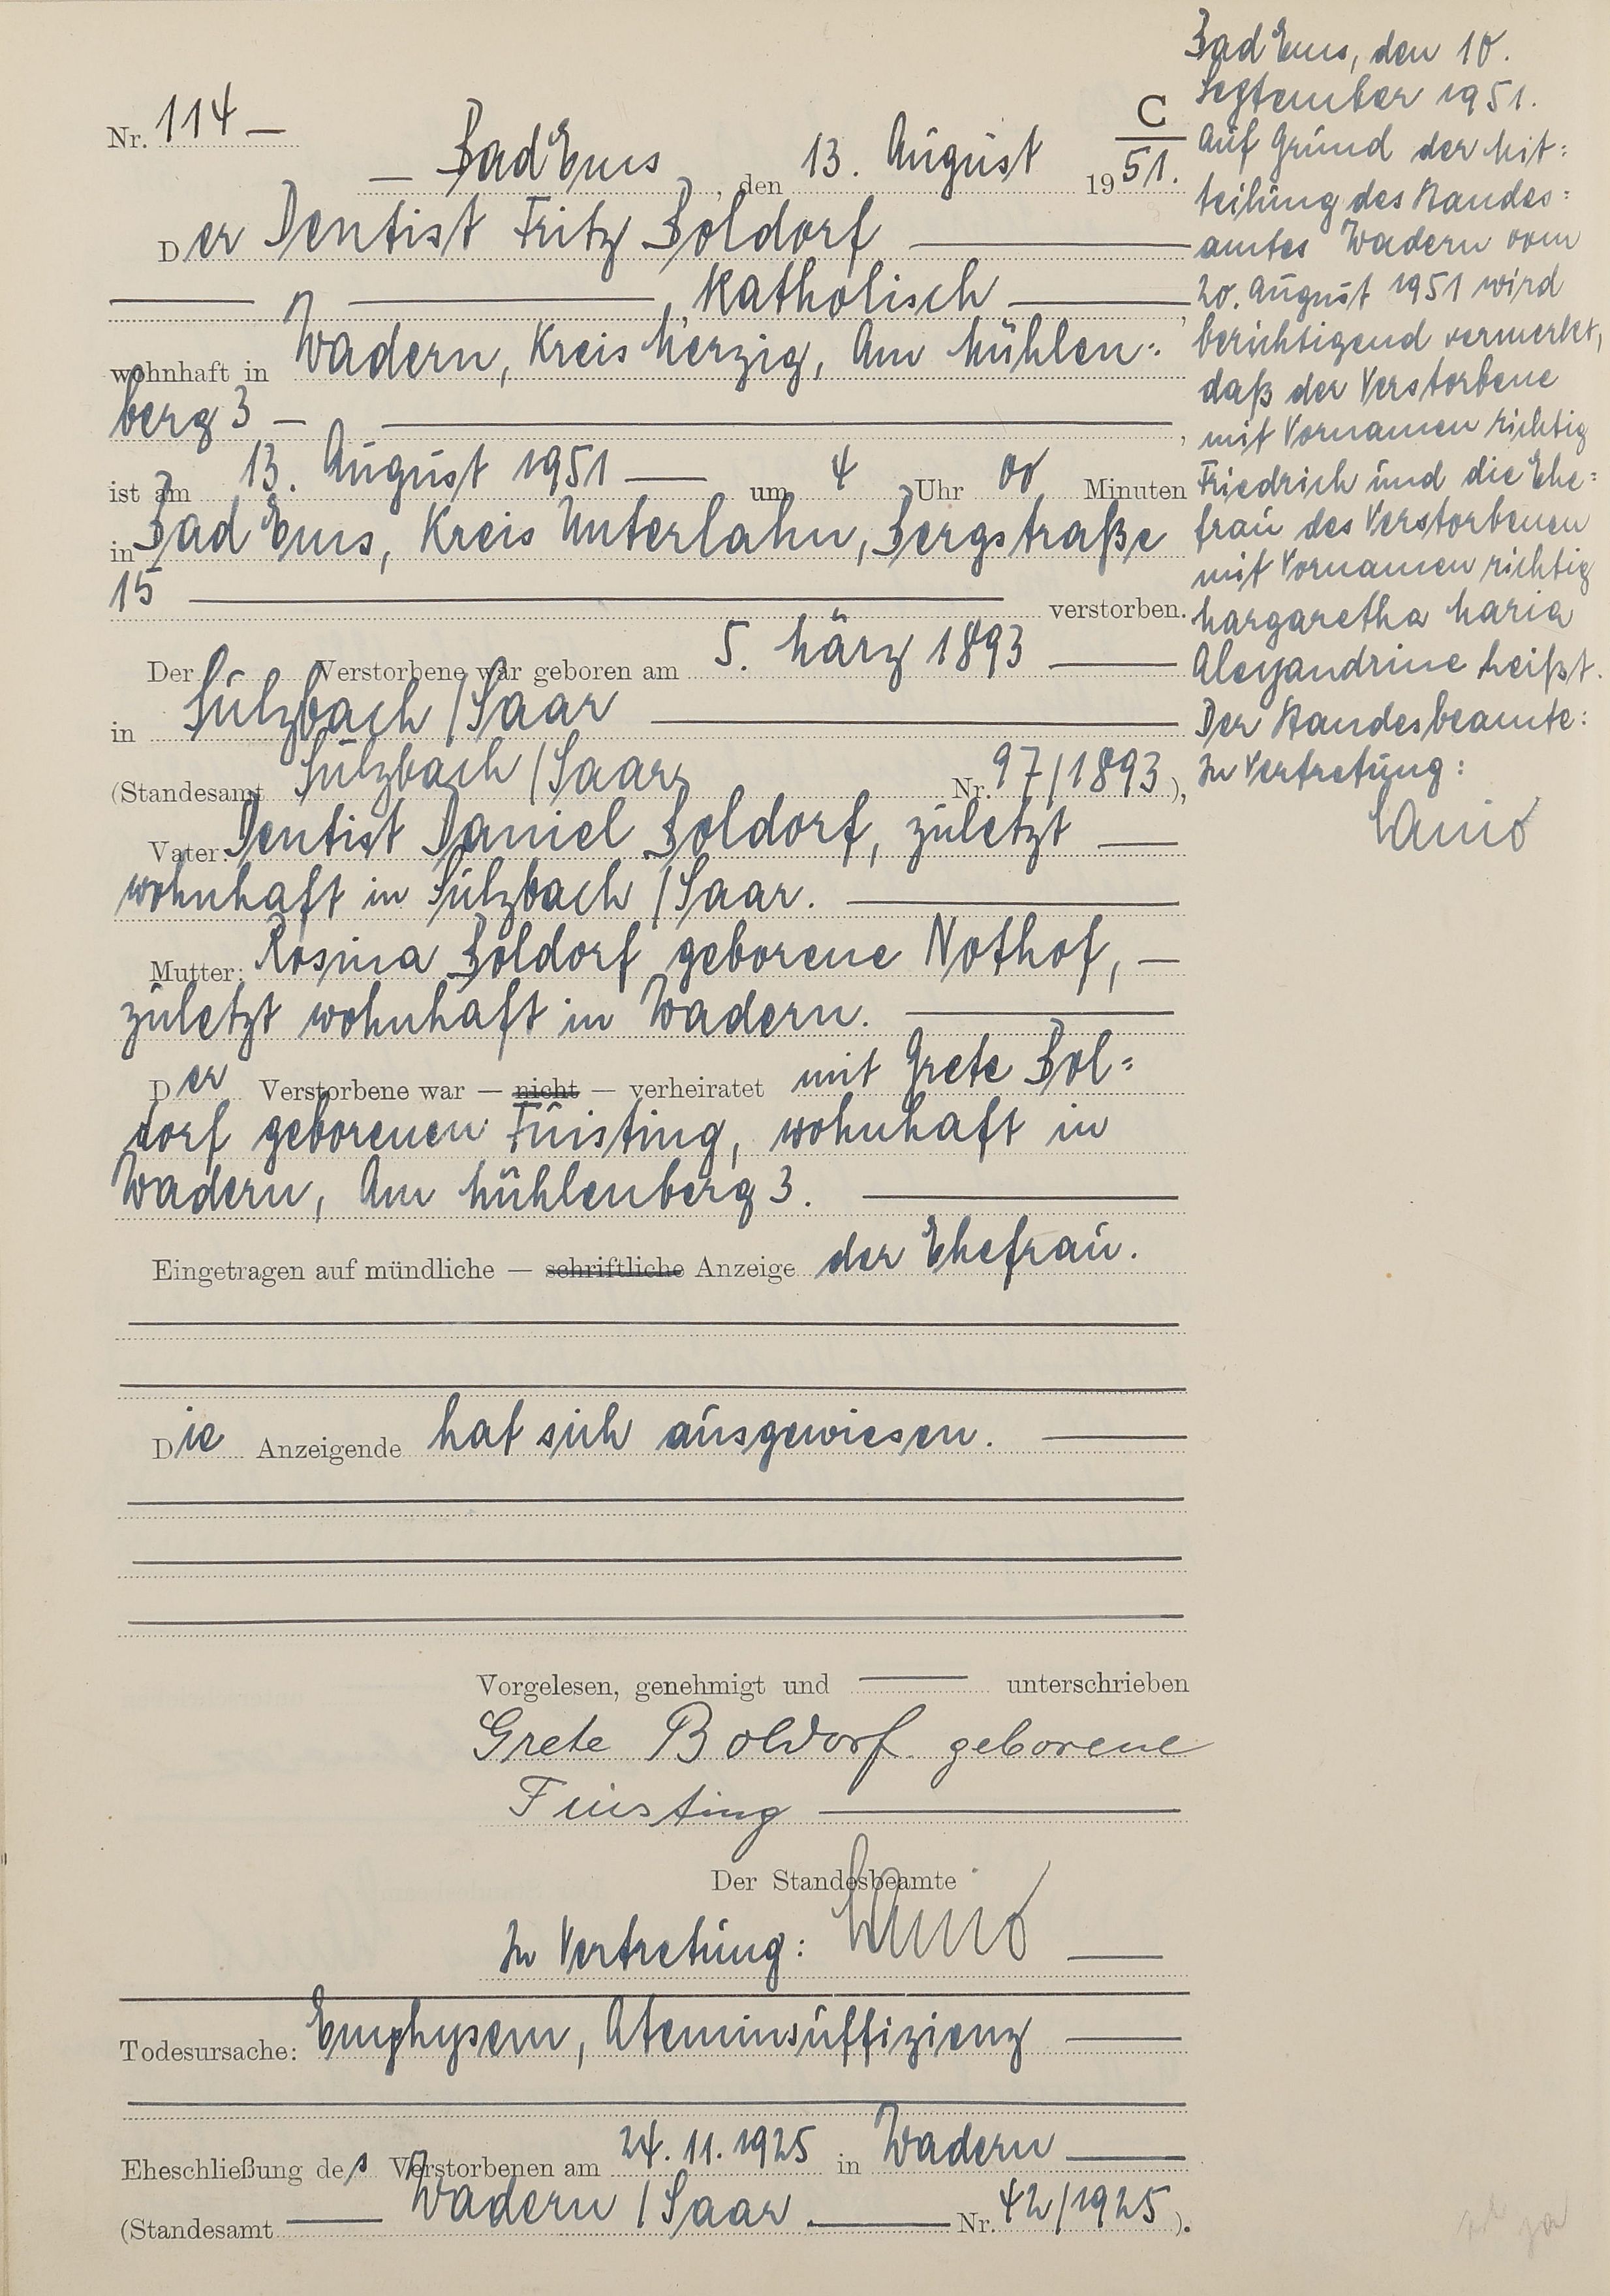 Nr. 114 —
C
— Bad Ems, den 13. August 1951.
Der Dentist Fritz Boldorf
, katholisch ,
wohnhaft in Wadern, Kreis Merzig, Am Mühlen=
berg 3 — ,
ist am 13. August 1951 — um 4 Uhr 00 Minuten
in Bad Ems, Kreis Unterlahn, Bergstraße
15 verstorben.
Der Verstorbene war geboren am 5. März 1893
in Sulzbach/Saar
(Standesamt Sulzbach/Saar, Nr. 97/1893),
Vater: Dentist Daniel Boldorf, zuletzt
wohnhaft in Sulzbach/Saar.
Mutter: Rosina Boldorf geborene Nothof, —
zuletzt wohnhaft in Wadern.
Der Verstorbene war — nicht — verheiratet mit Grete Bol=
dorf geborenen Fuisting, wohnhaft in
Wadern, Am Mühlenberg 3.
Eingetragen auf mündliche — schriftliche Anzeige der Ehefrau.
Die Anzeigende hat sich ausgewiesen.
Vorgelesen, genehmigt und — unterschrieben
Grete Boldorf geborene
Fuisting —
Der Standesbeamte
In Vertretung:
Todesursache: Emphysem, Ateminsuffizienz
Eheschließung des Verstorbenen am 24.11.1925 in Wadern
(Standesamt — Wadern/Saar. — Nr. 42/1925).
Bad Ems, den 10.
September 1951.
Auf Grund der Mit=
teilung des Standes=
amtes Wadern vom
20. August 1951 wird
berichtigend vermerkt,
daß der Verstorbene
mit Vornamen richtig
Friedrich und die Ehe=
frau des Verstorbenen
mit Vornamen richtig
Margaretha Maria
Alexandrine heißt.
Der Standesbeamte:
In Vertretung: